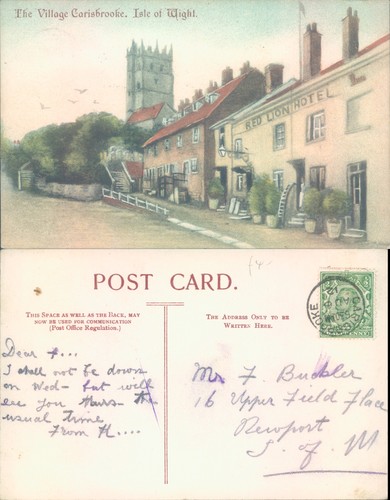 The Village Carisbrooke. Isle of Wight.
RED LION HOTEL
POST CARD.
THIS SPACE AS WELL AS THE BACK, MAY
NOW BE USED FOR COMMUNICATION
(Post Office Regulation.)
THE ADDRESS ONLY TO BE
WRITTEN HERE.
CARISBROOKE
Dear F...
I shall not be down
on Wed - but will
see you thurs - the
usual time
From H....
Mr F. Buckler
16 Upper Field Place
Newport
I. of W